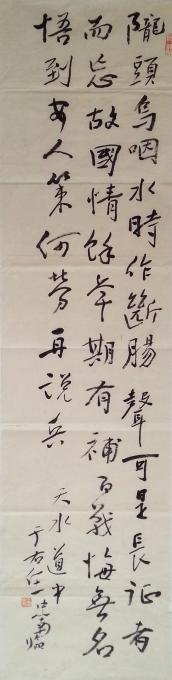 隴頭烏咽水時作斷腸聲可是長征者
而忘故國情餘年期有補百戰悔無名
悟到安人策何勞再說兵
天水道中
于右任